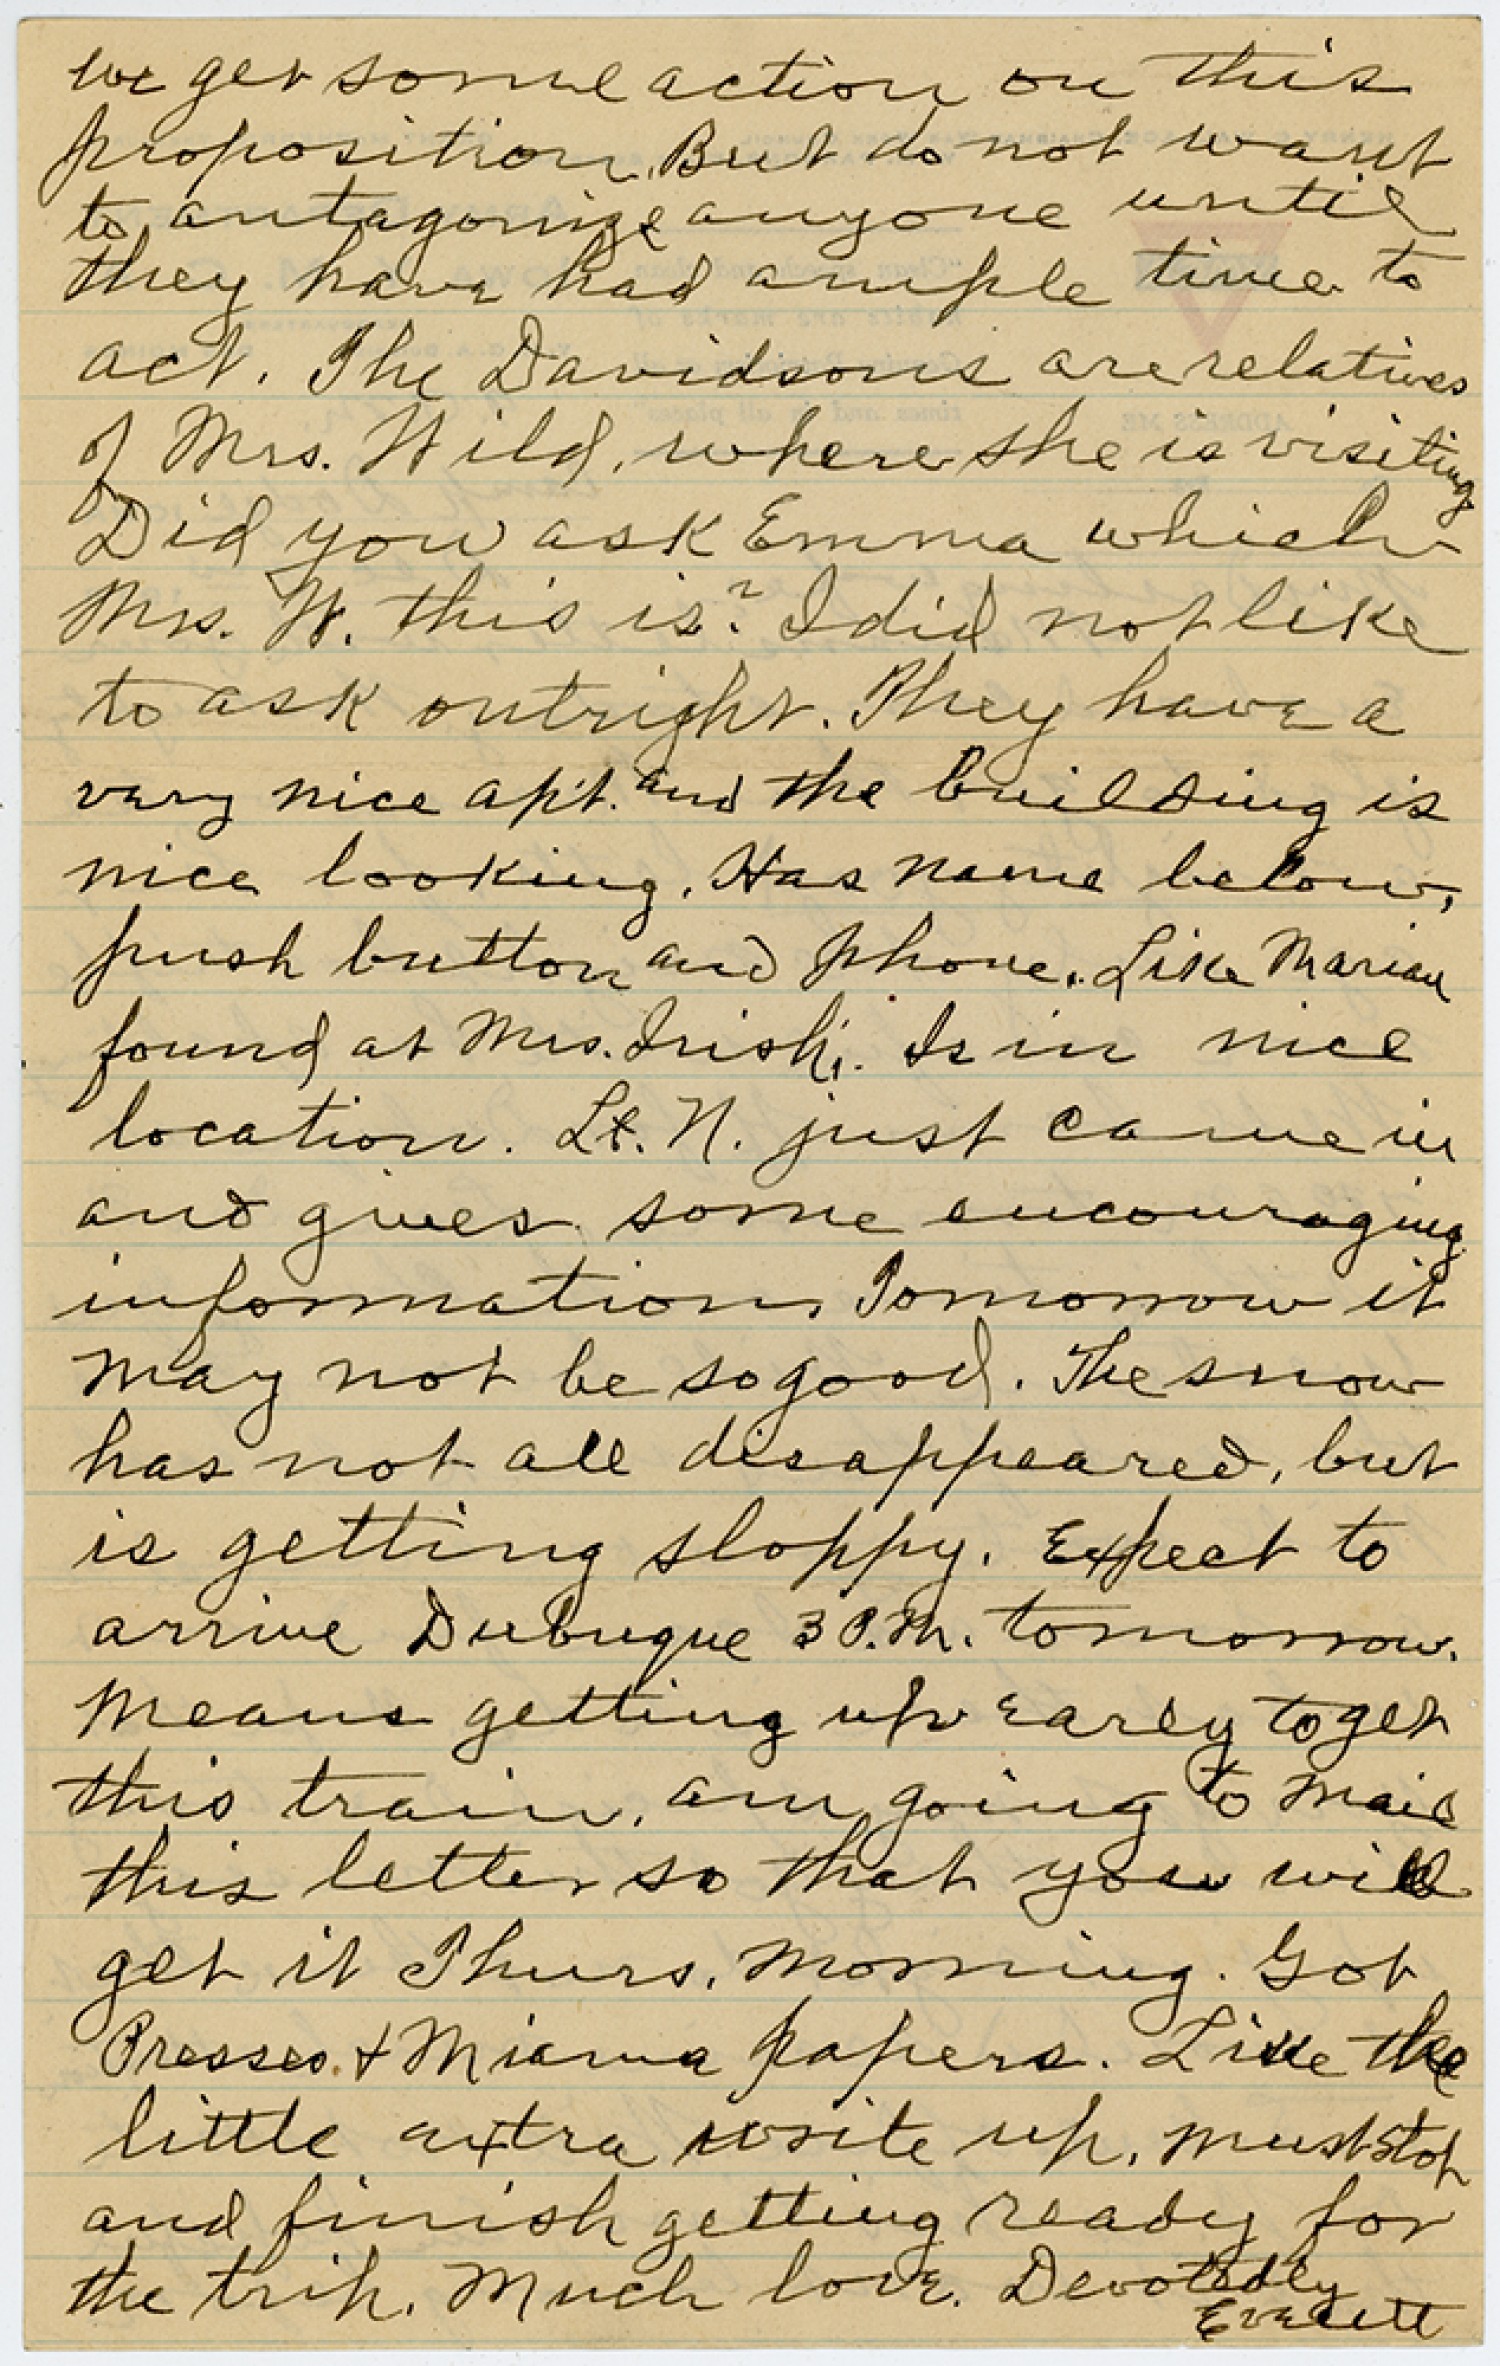 we get some action on this
proposition. But do not want
to antagonize anyone until
they have had ample time to
act. The Davidsons are relatives
of Mrs. Wild, where she is visiting
Did you ask Emma which
Mrs. W. this is? I did not like
to ask outright. They have a
very nice apt. and the building is
nice looking. Has name below,
push button and phone. Like Marian
found at Mrs. Irish. Is in nice
location. Lt. N. just came in
and gives some encouraging
information. Tomorrow it
may not be so good. The snow
has not all disappeared, but
is getting sloppy. Expect to
arrive Dubuque 3 P.M. tomorrow.
Means getting up early to get
this train. am going to mail
this letter so that you will
get it Thurs. morning. Got
Presses + Miama papers. Like the
little extra write up. Must stop
and finish getting ready for
the trip. Much love. Devotedly
Everett